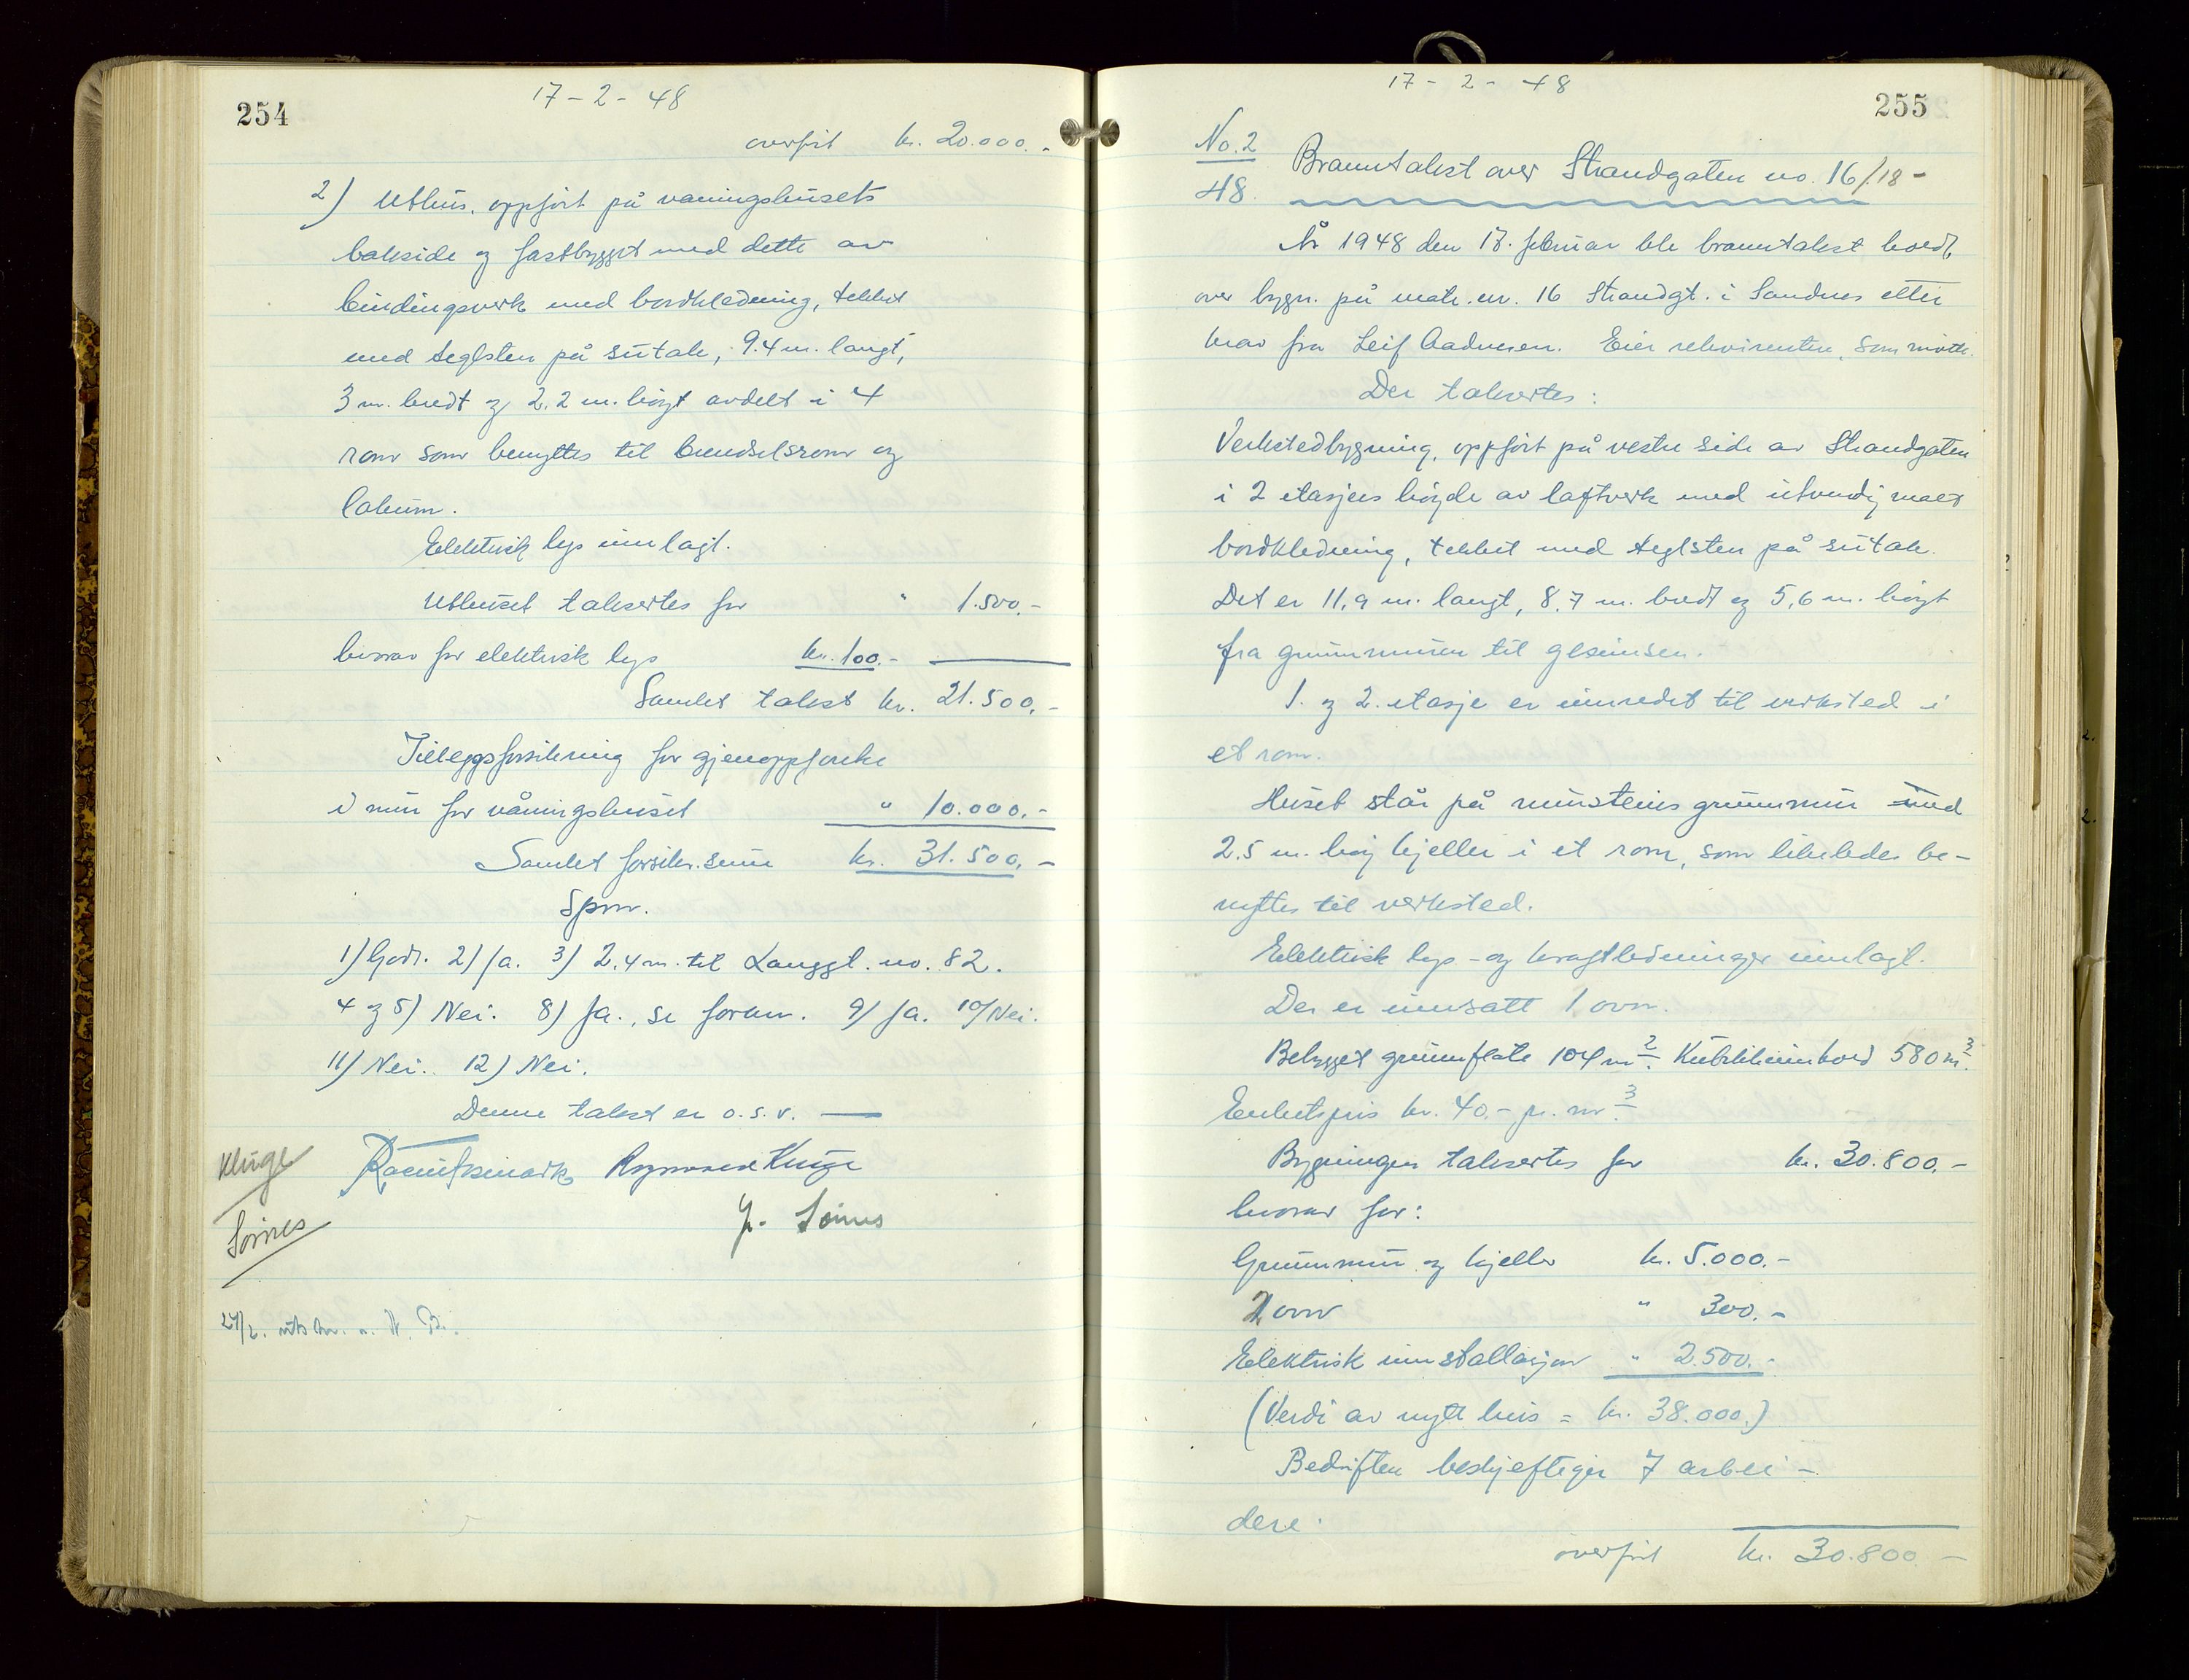 254
17-2-48
overført kr. 20.000.-
2) Uthus, oppført på vaningshusets
bakside og fastbygget med dette av
bindingsverk med bordkledning, tekket
med teglsten på sutak, 9.4 m. langt,
3 m. bredt og 2.2 m. høgt avdelt i 4
rom som benyttes til brendselsrom og
lokum.
Elektrisk lys innlagt.
Uthuset takseres for " 1.500.-
hvorav for elektrisk lys kr. 100.-
Samlet takst kr. 21.500.-
Tilleggsforsikring for gjenoppførelse
i mur for våningshuset " 10.000.-
Samlet forsikr.sum kr. 31.500.-
Spm.
1) Godt. 2) Ja. 3) 2.4 m. til Langgt. no. 82.
4 og 5) Nei. 8) Ja., se foran. 9) Ja. 10) Nei.
11) Nei. 12) Nei.
Denne takst er o.s.v.
Kluge
Rasmus Kluge
J. Sömes
Sömes
24/2. utskr. n. N. B.
255
17-2-48
No. 2
48
Branntakst over Strandgaten no. 16/18-
År 1948 den 17. februar ble branntakst hold
over bygn. på matr.nr. 16 Strandgt. i Sandnes etter
krav fra Leif Aadnesen. Eier rekvirenten, som møtte.
Der takseres:
Verkstedbygning, oppført på vestre side av Strandgaten
i 2 etasjers høgde av laftverk med utvendig malt
bordkledning, tekket med teglsten på sutak.
Det er 11,9 m. langt, 8,7 m. bredt og 5,6 m. høgt
fra grunnmuren til gesimsen.
1. og 2. etasje er innredet til verksted i
et rom.
Huset står på mursteins grunnmur med
2.5 m. høg kjeller i et rom, som likeledes be-
nyttes til verksted.
Elektrisk lys- og kraftledninger innlagt.
Der er innsatt 1 ovn.
Bebygget grunnflate 104 m². Kubikkinnhold 580 m³.
Enhetspris kr. 40.- pr. m³
Bygningen takseres for kr. 30.800.-
hvorav for:
Grunnmur og kjeller kr. 5.000.-
1 ovn " 300.-
Elektrisk innstallasjon " 2.500.-
(Verdi av nytt hus = kr. 38.000.)
Bedriften beskjeftiger 7 arbei-
dere.
overført kr. 30.800.-